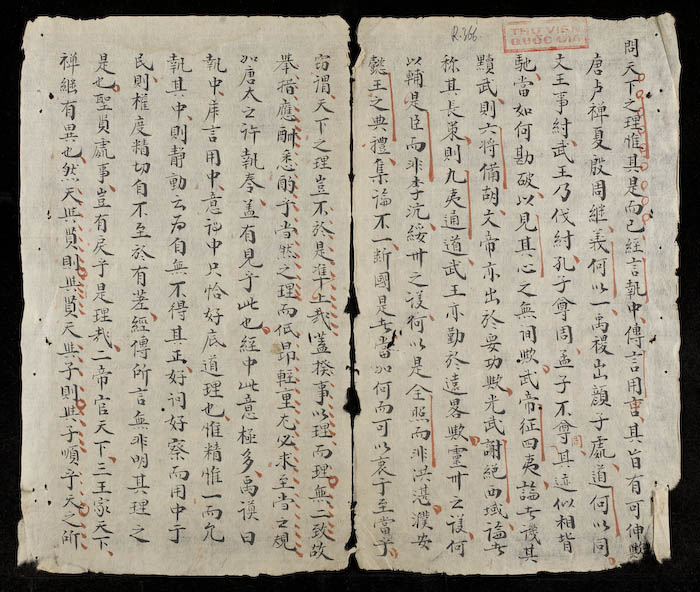 R.366
THƯ VIỆN
QUỐC GIA
問天下之理惟其是而已經言執中傳言用中其旨有可伸歟
唐虞禪夏殷周繼義何以一禹稷出顏子處道何以同
文王事紂武王乃伐紂孔子尊周孟子不尊周其迹似相背
馳當如何勘破以見其心之無間歟武帝征四夷論者譏其
黷武則六將備胡文帝亦出於要功歟光武謝絕西域論者
稱其長策則九夷通道武王亦勤於遠畧歟靈州之議何
以輔是臣而非李沆綏州之議何以是全照而非洪湛濮安
懿王之典禮集論不一斷國是者當如何而可以衷于至當乎
竊謂天下之理豈不於是準上哉蓋揆事以理而理無二致故
舉措應酬悉酌乎當然之理而低昂輕重尤必求至當之規
如唐大立許執奏蓋有見乎此也經中此意極多禹謨曰
執中庸言用中意謂中只恰好底道理也惟精惟一而允
執其中則靜動云為自無不得其正好問好察而用中于
民則權度精切自不至於有差經傳所言無非明其理之
是也聖賢處事豈有戾乎是理哉二帝官天下三王家天下
禪繼有異也然天與賢則與賢天與子則與子順乎天之所